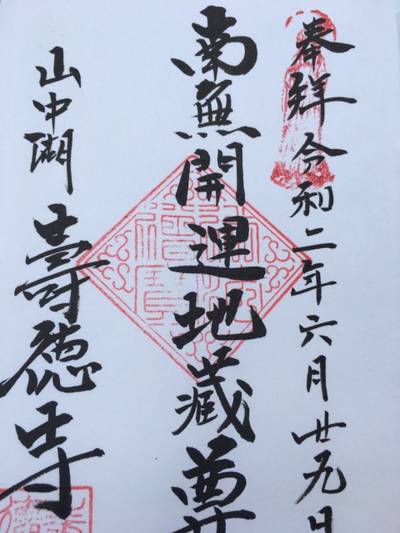 奉拜 令和二年六月廿九日
南無開運地蔵尊
山中湖 壽徳寺